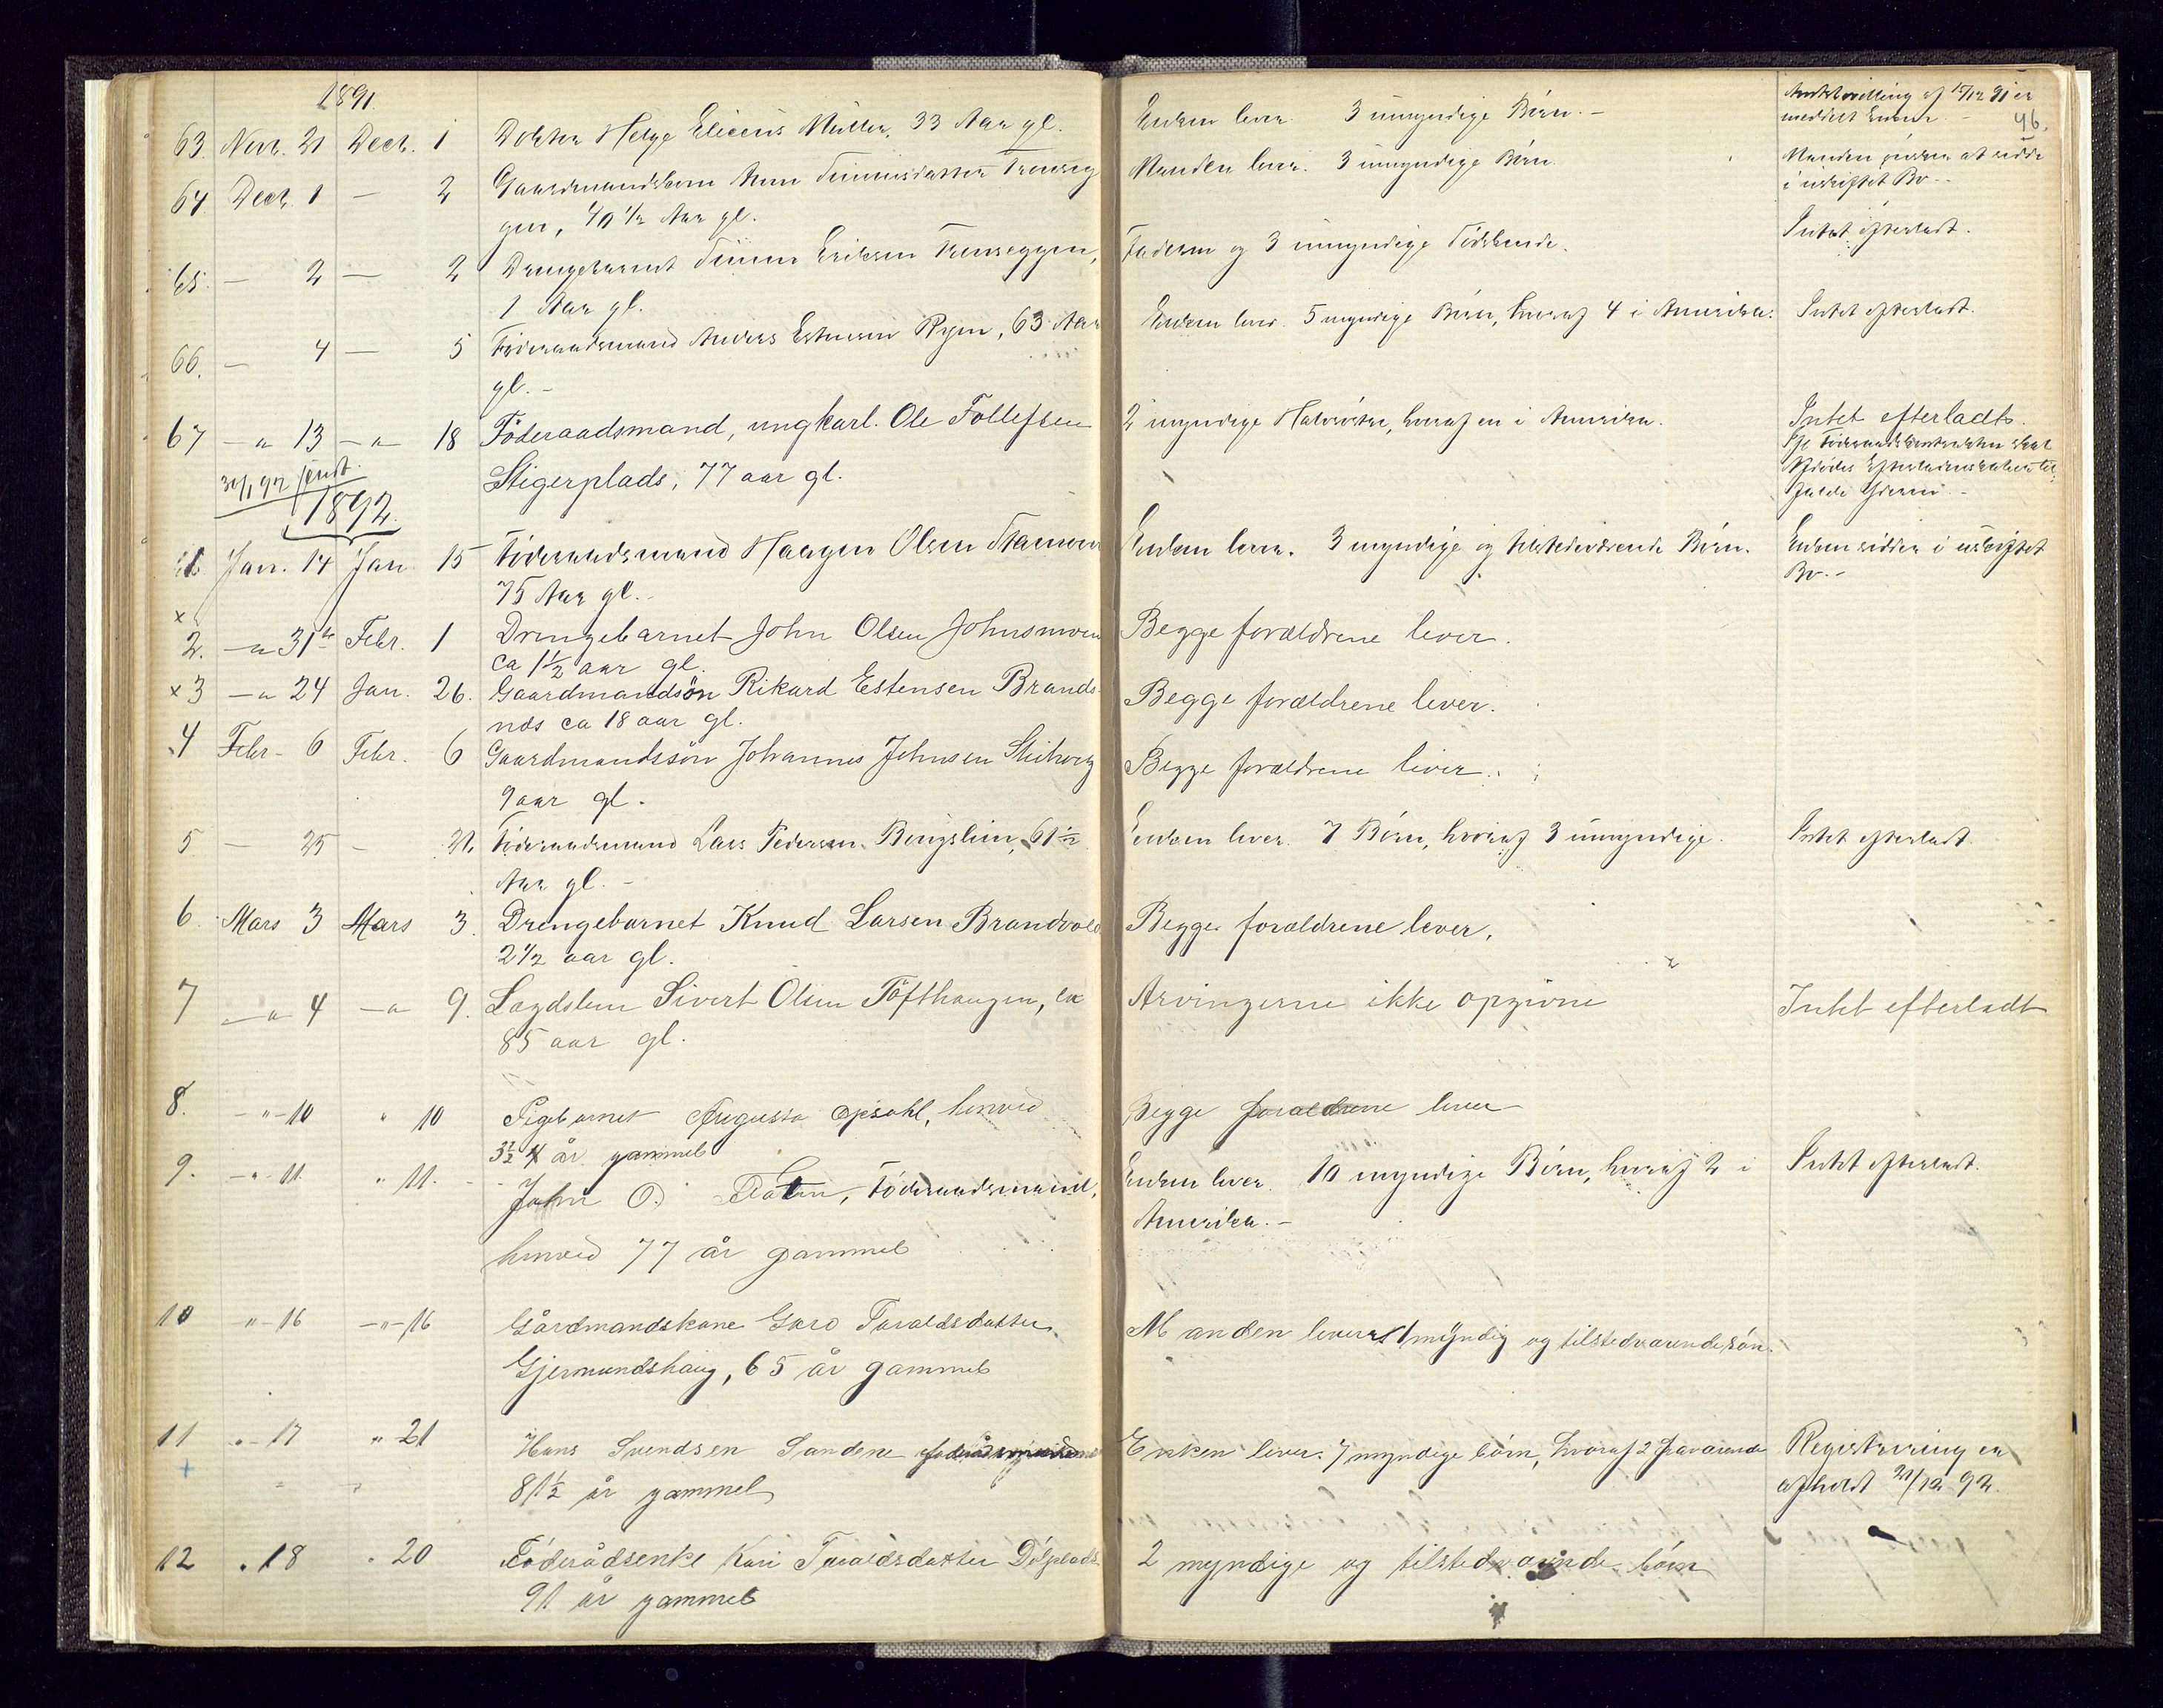 46.
1891.
63. Novr. 21 Decb. 1 Doktor Helge Elieeus Müller, 33 Aar gl. Enken lever. 3 umyndige Børn. – Amtsbevilling af 15/12 91 er
meddelt Enken. –
64. Decb. 1 — 2 Gaardmandskone Anne Finnisdatter Tronseg Manden lever. 3 umyndige Børn. Manden ønsker at sidde
gen, 40 1/2 Aar gl. i uskiftet Bo. –
65. — 2 — 2 Drengebarnet Eriksen Tronseggen, Faderen og 3 umyndige Sødskende. Intet efterladt.
1 Aar gl.
66. — 4 — 5 Føderaadsmand Anders Estensen Ryen, 63 Aar Enken lever. 5 myndige Børn, hvoraf 4 i Amerika. Intet efterladt.
gl. –
67 — " 13 — " — 18 Föderaadsmand, ungkarl. Ole Tollefsen 2 myndige Halvsøstre, hvoraf en i Amerika. Intet efterladt.
Stigerplads, 77 aar gl. Ifl. Føderaadskontrakten skal
Afdødes Efterladenskaber til-
falde
31/1 92 sendt.
1892.
1 Jan. 14 Jan 15 Föderaadsmand Haagen Olsen Enken lever. 3 myndige og tilstedeværende Børn. Enken sidder i uskiftet
75 Aar gl. – Bo. –
x
2. — " 31te Febr. 1 Drengebarnet John Olsen Johnsmoen Begge forældrene lever.
ca 1 1/2 aar gl.
x 3 — " 24 Jan. 26. Gaardmandsön Rikard Estensen Brands- Begge forældrene lever.
nds ca 18 aar gl.
4 Febr. 6 Febr. 6 Gaardmandssön Johannes Johnsen Begge forældrene lever.
9 aar gl.
5 — 25 — Føderaadsmand Lars Pedersen 61 1/2 Enken lever. 7 Børn, hvoraf 3 umyndige. Intet efterladt
Aar gl. –
6. Mars 3 Mars 3. Drengebarnet Knud Larsen Brandvold Begge forældrene lever.
2 1/2 aar gl.
7 — " 4 — " 9. Lægdslem Sivert Olsen Töfthaugen, ca Arvingerne ikke opgivne Intet efterladt
85 aar gl.
8. — " — 10 " 10 Pigebarnet Augusta Opsahl, henved Begge forældrene lever
3 1/2 4 år gammel
9. — " — 11. " 11. John O. Flaten, Föderaadsmand, Enken lever. 10 myndige Børn, hvoraf 2 i Intet efterladt.
henved 77 år gammel Amerika. –
10 " — 16 — " — 16 Gårdmandskone Guro Taraldsdatter Manden lever 1 myndig og tilstedværende sön.
Gjermundshaug, 65 år gammel
11 " — 17 " 21 Hans Svendsen Sandene Enken lever. 7 myndige börn, hvoraf 2 fraværende Registrering er
+ 81 1/2 år gammel afholdt 21/12 92.
12 " 18 " 20 Föderådsenke Kari Taraldsdatter Dölplads 2 myndige og tilstedværende börn
91 år gammel